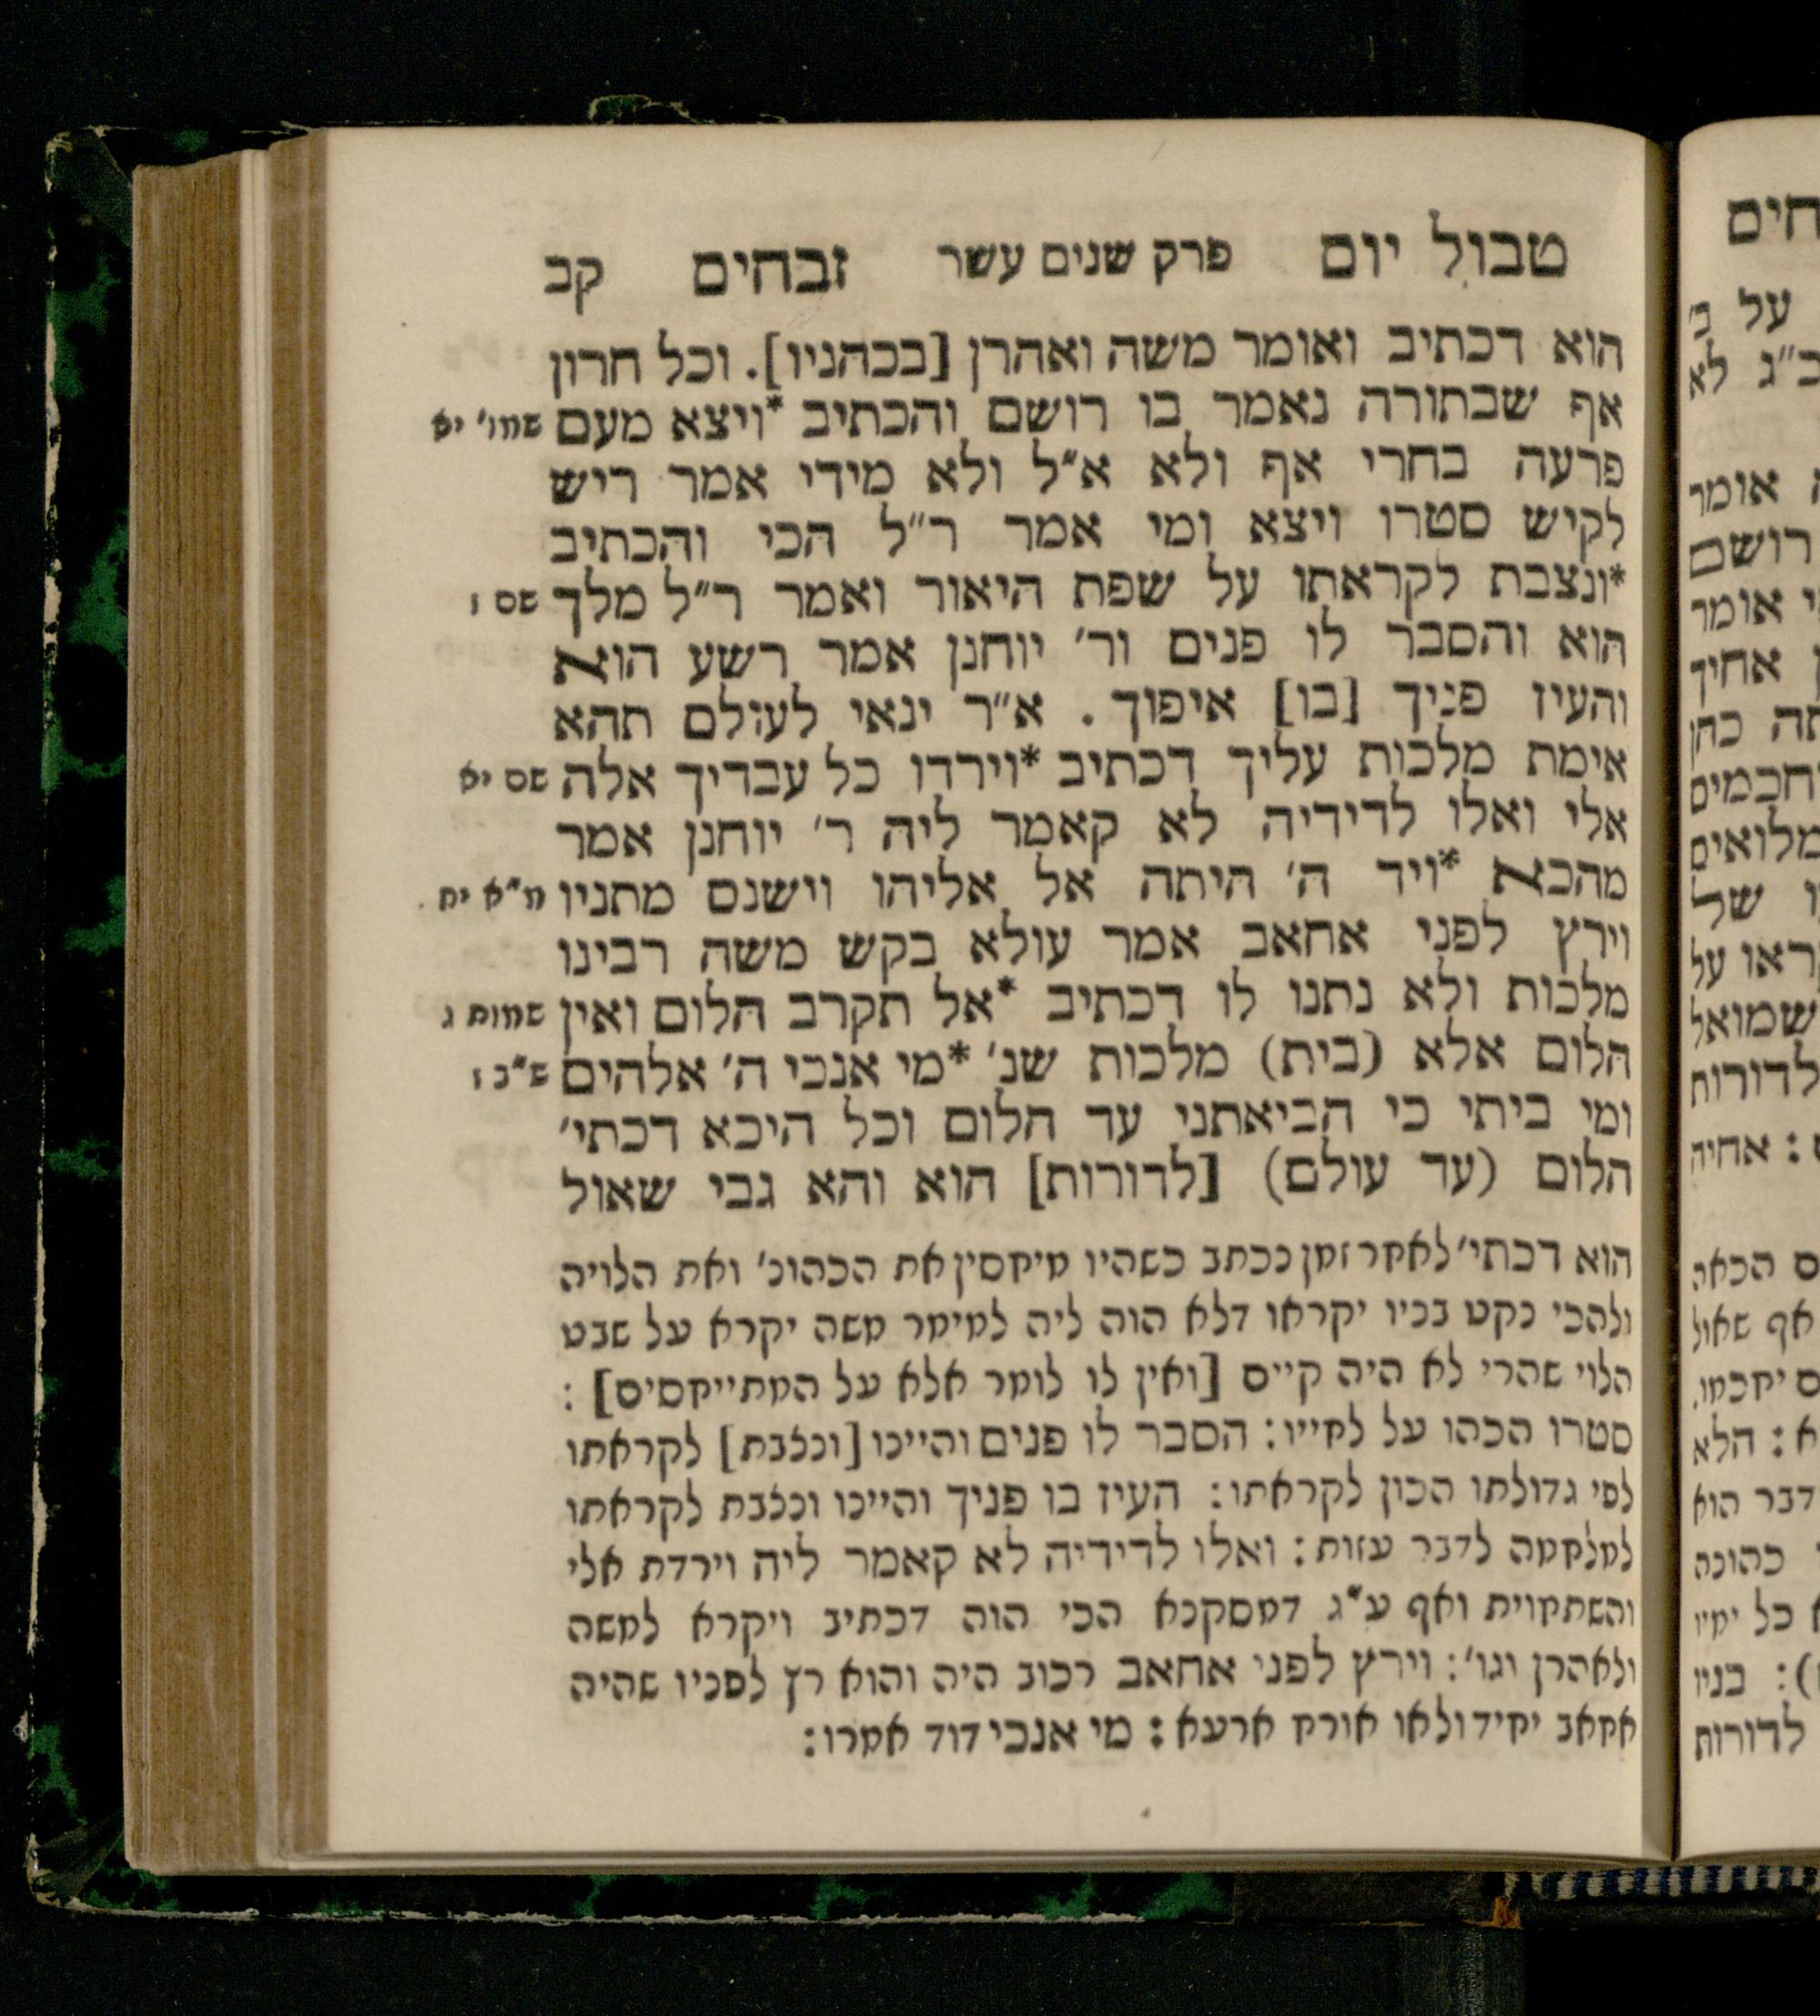 טבול יום פרק שנים עשר זבחים קב
הוא דכתיב ואומר משה ואהרן [בכהניו]. וכל חרון
אף שבתורה נאמר בו רושם והכתיב *ויצא מעם שמו׳ יא
פרעה בחרי אף ולא א״ל ולא מידי אמר ריש
לקיש סטרו ויצא ומי אמר ר״ל הכי והכתיב
*ונצבת לקראתו על שפת היאור ואמר ר״ל מלך שם ז
הוא והסבר לו פנים ור׳ יוחנן אמר רשע הוא
והעיז פניך [בו] איפוך. א״ר ינאי לעולם תהא
אימת מלכות עליך דכתיב *וירדו כל עבדיך אלה שם יא
אלי ואלו לדידיה לא קאמר ליה ר׳ יוחנן אמר
מהכא *ויד ה׳ היתה אל אליהו וישנס מתניו מ״א יח
וירץ לפני אחאב אמר עולא בקש משה רבינו
מלכות ולא נתנו לו דכתיב *אל תקרב הלום ואין שמות ג
הלום אלא (בית) מלכות שנ׳ *מי אנכי ה׳ אלהים ש״ב ז
ומי ביתי כי הביאתני עד הלום וכל היכא דכתי׳
הלום (עד עולם) [לדורות] הוא והא גבי שאול
הוא דכתי׳ לאחר זמן נכתב כשהיו מיחסין את הכהונ׳ ואת הלויה
ולהכי נקט בניו יקראו דלא הוה ליה למימר משה יקרא על שבט
הלוי שהרי לא היה קיים [ואין לו לומר אלא על המתייחסים]:
סטרו הכהו על לחייו: הסבר לו פנים והיינו [ונצבת] לקראתו
לפי גדולתו הכון לקראתו: העיז בו פניך והיינו ונצבת לקראתו
למלחמה לדבר עזות: ואלו לדידיה לא קאמר ליה וירדת אלי
והשתחוית ואף ע״ג דמסקנא הכי הוה דכתיב ויקרא למשה
ולאהרן וגו׳: וירץ לפני אחאב רכוב היה והוא רץ לפניו שהיה
אחאב יחיד ולאו אורח ארעא: מי אנכי דוד אמרו:
חים
על ב׳
ב״ג לא
אומר
רושם
אומר
אחיך
כהן
וחכמים
מלואים
של
על
שמואל
לדורות
: אחיה
הכאה
אף שאול
יחכמו.
: הלא
דבר הוא
כהונה
כל ימיו
): בניו
לדורות